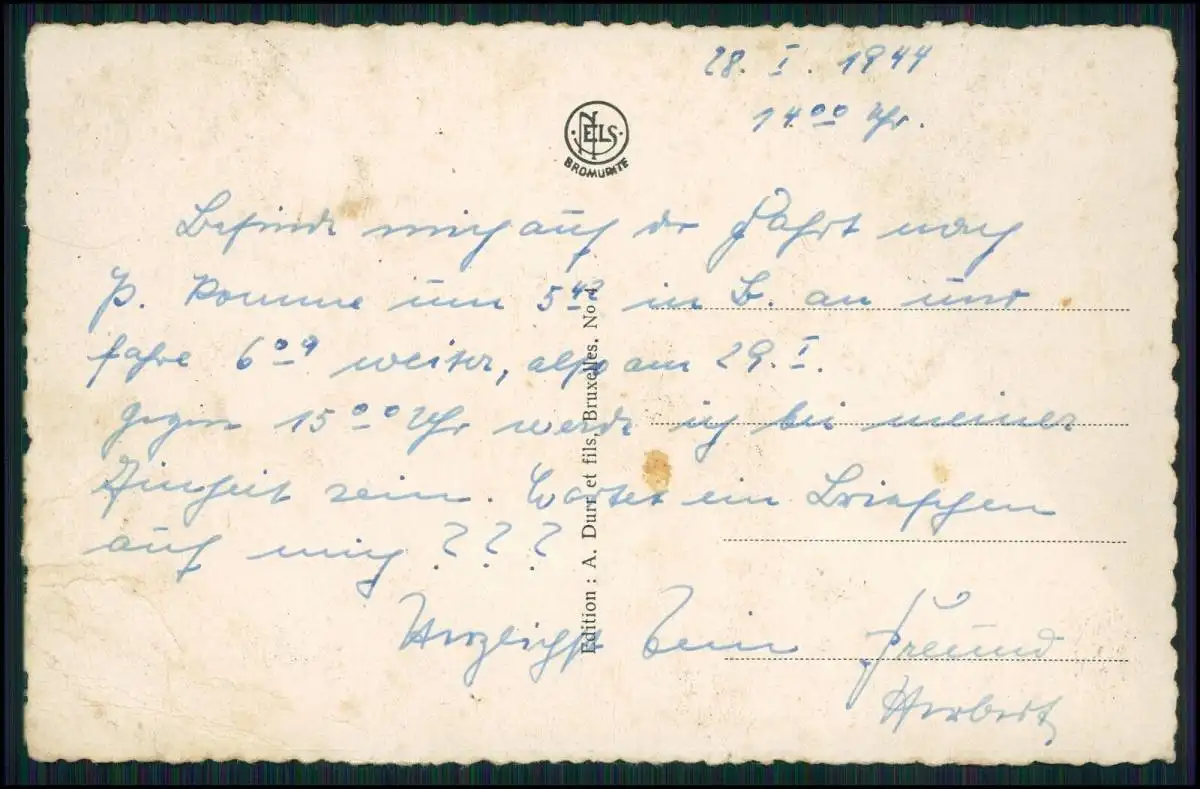 28. I. 1944
14⁰⁰ Uhr.
NELS
BROMURITE
Befinde mich auf der Fahrt nach
P. Komme um 5⁴² in B. an und
fahre 6⁰⁹ weiter, also am 29. I.
gegen 15⁰⁰ Uhr werde ich bei meiner
Einheit sein. Wartet ein Briefchen
auf mich ? ? ?
Herzlichst Dein Freund
Herbert
Edition : A. Durr et fils, Bruxelles, No 4